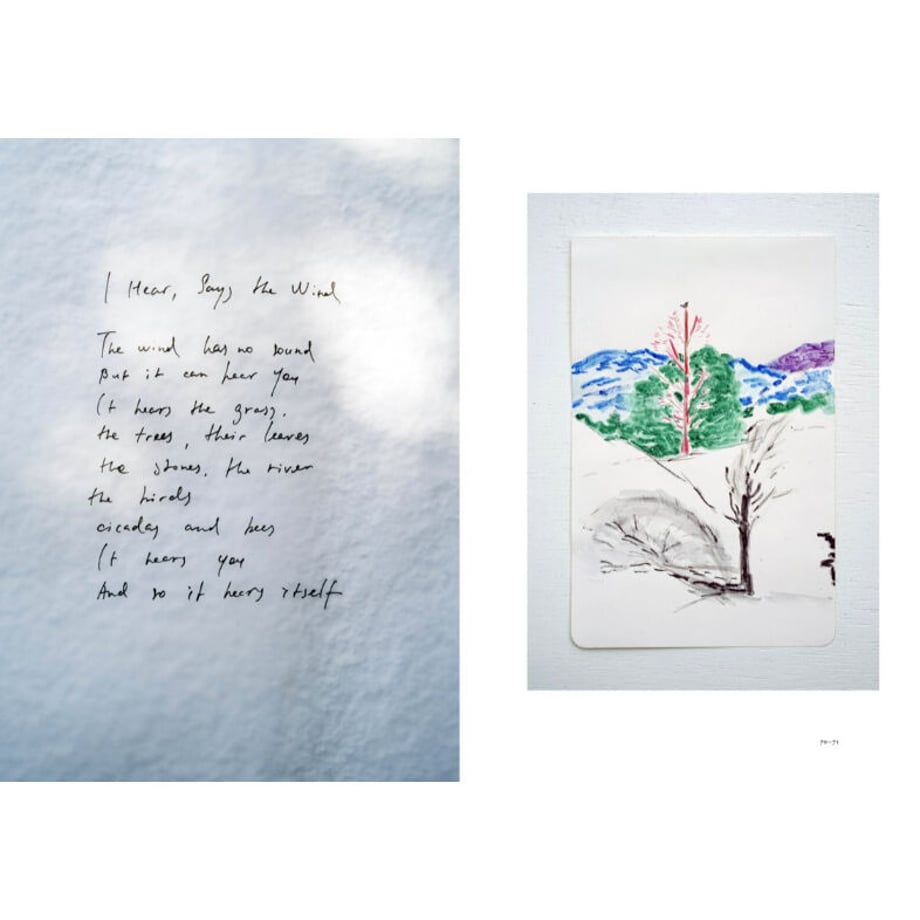 I Hear, Says the Wind
The wind has no sound
But it can hear you
It hears the grass,
the trees, their leaves
the stones, the river
the birds
cicadas and bees
It hears you
And so it hears itself
70–71